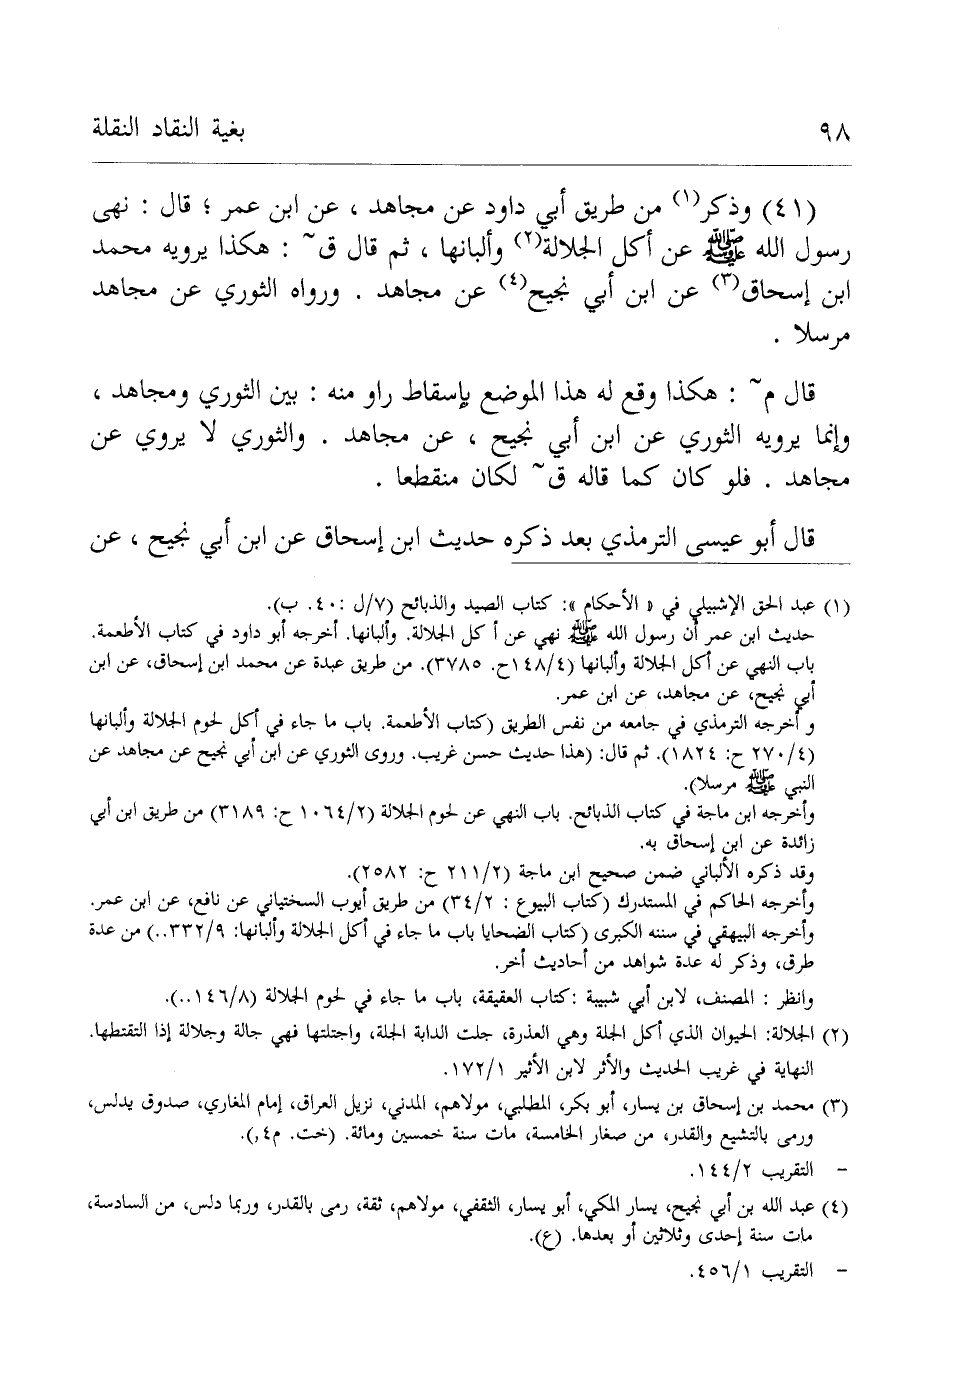 ٩٨ بغية النقاد النقلة
(٤١) وذكر(١) من طريق أبي داود عن مجاهد ، عن ابن عمر ؛ قال : نهى
رسول الله ﷺ عن أكل الجلالة(٢) وألبانها ، ثم قال ق~ : هكذا يرويه محمد
ابن إسحاق(٣) عن ابن أبي نجيح(٤) عن مجاهد . ورواه الثوري عن مجاهد
مرسلا .
قال م~ : هكذا وقع له هذا الموضع بإسقاط راو منه : بين الثوري ومجاهد ،
وإنما يرويه الثوري عن ابن أبي نجيح ، عن مجاهد . والثوري لا يروي عن
مجاهد . فلو كان كما قاله ق~ لكان منقطعا .
قال أبو عيسى الترمذي بعد ذكره حديث ابن إسحاق عن ابن أبي نجيح ، عن
(١) عبد الحق الإشبيلي في « الأحكام »: كتاب الصيد والذبائح (٧/ل :٤٠. ب).
حديث ابن عمر أن رسول الله ﷺ نهي عن أ كل الجلالة. وألبانها. أخرجه أبو داود في كتاب الأطعمة.
باب النهي عن أكل الجلالة وألبانها (١٤٨/٤ح. ٣٧٨٥). من طريق عبدة عن محمد ابن إسحاق، عن ابن
أبي نجيح، عن مجاهد، عن ابن عمر.
و أخرجه الترمذي في جامعه من نفس الطريق (كتاب الأطعمة. باب ما جاء في أكل لحوم الجلالة وألبانها
(٢٧٠/٤ ح: ١٨٢٤). ثم قال: (هذا حديث حسن غريب. وروى الثوري عن ابن أبي نجيح عن مجاهد عن
النبي ﷺ مرسلا).
وأخرجه ابن ماجة في كتاب الذبائح. باب النهي عن لحوم الجلالة (١٠٦٤/٢ ح: ٣١٨٩) من طريق ابن أبي
زائدة عن ابن إسحاق به.
وقد ذكره الألباني ضمن صحيح ابن ماجة (٢١١/٢ ح: ٢٥٨٢).
وأخرجه الحاكم في المستدرك (كتاب البيوع : ٣٤/٢) من طريق أيوب السختياني عن نافع، عن ابن عمر.
وأخرجه البيهقي في سننه الكبرى (كتاب الضحايا باب ما جاء في أكل الجلالة وألبانها: ٣٣٢/٩..) من عدة
طرق، وذكر له عدة شواهد من أحاديث أخر.
وانظر : المصنف، لابن أبي شبيبة :كتاب العقيقة، باب ما جاء في لحوم الجلالة (١٤٦/٨..).
(٢) الجلالة: الحيوان الذي أكل الجلة وهي العذرة، جلت الدابة الجلة، واجتلتها فهي جالة وجلالة إذا التقتطها.
النهاية في غريب الحديث والأثر لابن الأثير ١٧٢/١.
(٣) محمد بن إسحاق بن يسار، أبو بكر، المطلبي، مولاهم، المدني، نزيل العراق، إمام المغاري، صدوق يدلس،
ورمى بالتشيع والقدر، من صغار الخامسة، مات سنة خمسين ومائة. (خت. م٤,).
- التقريب ١٤٤/٢.
(٤) عبد الله بن أبي نجيح، يسار المكي، أبو يسار، الثقفي، مولاهم، ثقة، رمى بالقدر، وربما دلس، من السادسة،
مات سنة إحدى وثلاثين أو بعدها. (ع).
- التقريب ٤٥٦/١.